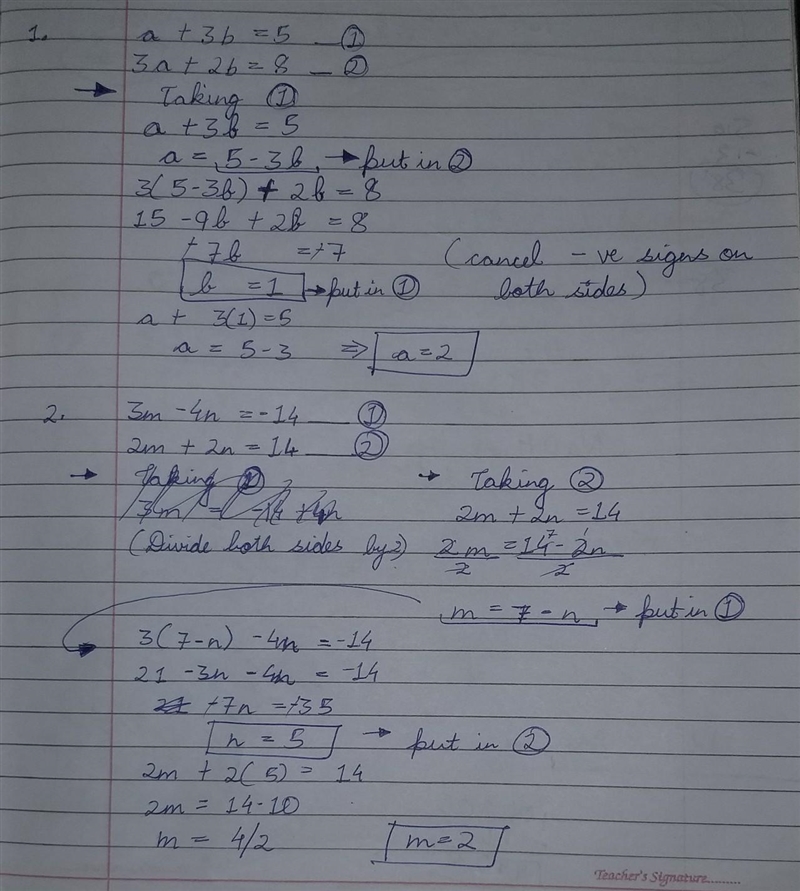 1. a + 3b = 5 — ①
3a + 2b = 8 — ②
→ Taking ①
a + 3b = 5
a = 5 - 3b → put in ②
3(5-3b) + 2b = 8
15 - 9b + 2b = 8
-7b = -7 (cancel -ve signs on
both sides)
b = 1 → put in ①
a + 3(1) = 5
a = 5-3 ⇒ a = 2
2. 3m - 4n = -14 — ①
2m + 2n = 14 — ②
→ Taking ①
3m = -14 + 4n
→ Taking ②
2m + 2n = 14
(Divide both sides by 2) 2m/2 = 14 - 2n/2
m = 7 - n → put in ①
3(7-n) - 4n = -14
21 - 3n - 4n = -14
-7n = -35
n = 5 → put in ②
2m + 2(5) = 14
2m = 14-10
m = 4/2 m = 2
Teacher's Signature.........